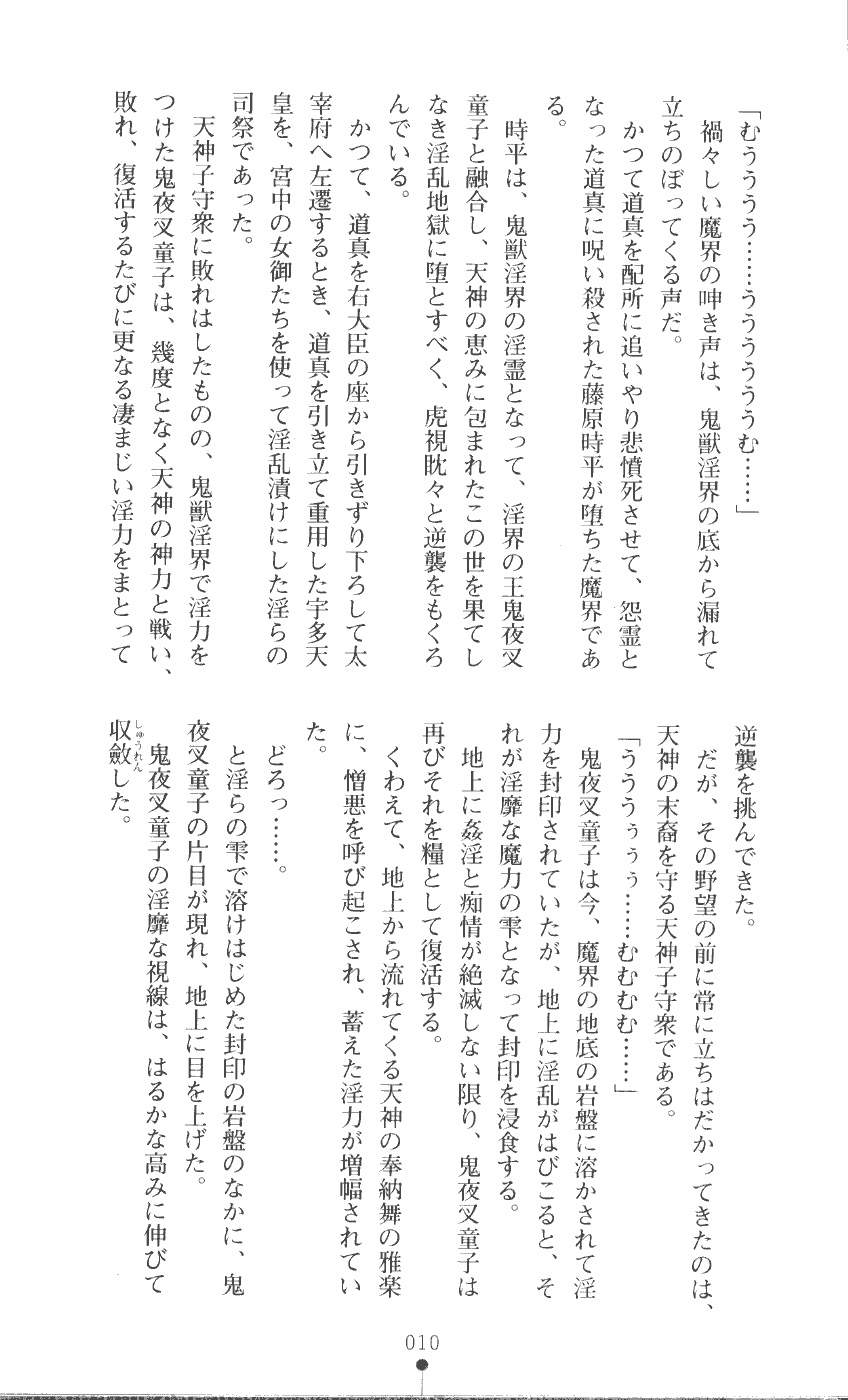 「むうううう……ううううううむ……」
　禍々しい魔界の呻き声は、鬼獣淫界の底から漏れて
立ちのぼってくる声だ。
　かつて道真を配所に追いやり悲憤死させて、怨霊と
なった道真に呪い殺された藤原時平が堕ちた魔界であ
る。
　時平は、鬼獣淫界の淫霊となって、淫界の王鬼夜叉
童子と融合し、天神の恵みに包まれたこの世を果てし
なき淫乱地獄に堕とすべく、虎視眈々と逆襲をもくろ
んでいる。
　かつて、道真を右大臣の座から引きずり下ろして太
宰府へ左遷するとき、道真を引き立て重用した宇多天
皇を、宮中の女御たちを使って淫乱漬けにした淫らの
司祭であった。
　天神子守衆に敗れはしたものの、鬼獣淫界で淫力を
つけた鬼夜叉童子は、幾度となく天神の神力と戦い、
敗れ、復活するたびに更なる凄まじい淫力をまとって
逆襲を挑んできた。
　だが、その野望の前に常に立ちはだかってきたのは、
天神の末裔を守る天神子守衆である。
「うううぅぅぅ……むむむむ……」
　鬼夜叉童子は今、魔界の地底の岩盤に溶かされて淫
力を封印されていたが、地上に淫乱がはびこると、そ
れが淫靡な魔力の雫となって封印を浸食する。
　地上に姦淫と痴情が絶滅しない限り、鬼夜叉童子は
再びそれを糧として復活する。
　くわえて、地上から流れてくる天神の奉納舞の雅楽
に、憎悪を呼び起こされ、蓄えた淫力が増幅されてい
た。
　どろっ……。
　と淫らの雫で溶けはじめた封印の岩盤のなかに、鬼
夜叉童子の片目が現れ、地上に目を上げた。
　鬼夜叉童子の淫靡な視線は、はるかな高みに伸びて
収斂した。
しゅうれん
010